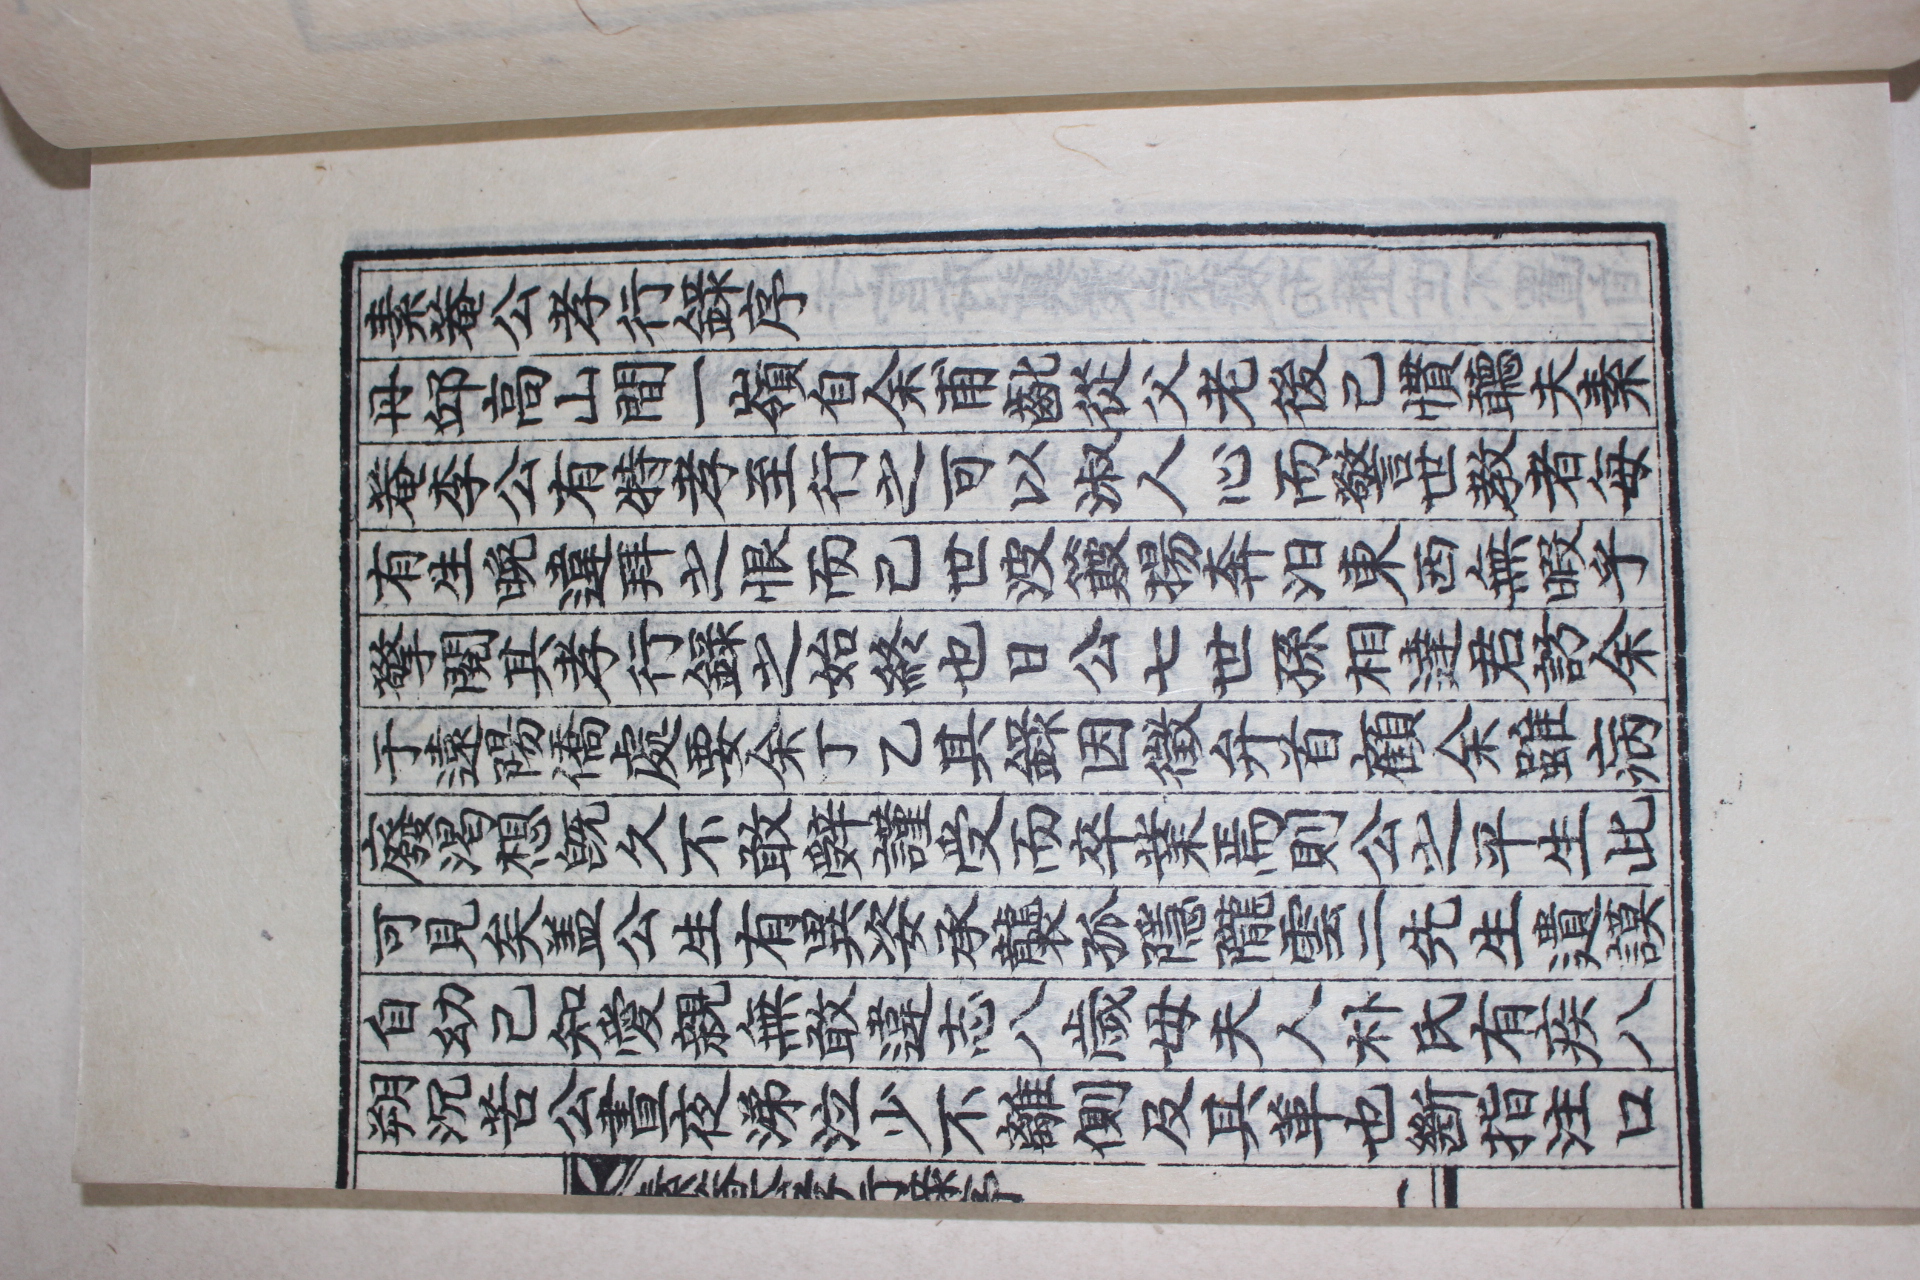 素菴公孝行錄序
丹邱高山間一嶺自余甫齠從父老後已慣聽夫素
菴李公有特孝至行之可以淑人心而警世教者每
有生晚違拜之恨而已世没揚奔汨東西無暇乎
擎閱其孝行錄之始終也日公七世孫相達君訪余
于遠陽僑處要余丁乙其錄因徵弁首顧余雖病
廢渴想旣久不敢辭謹受而卒業焉則公之平生此
可見矣盖公生有異姿承襲弥隱隴雲二先生遺謨
自幼已知愛親無敢違志八歲母夫人朴氏有疾八
朔沉苦公晝夜涕泣少不離側及其革也斷指注口
素菴公孝行錄序